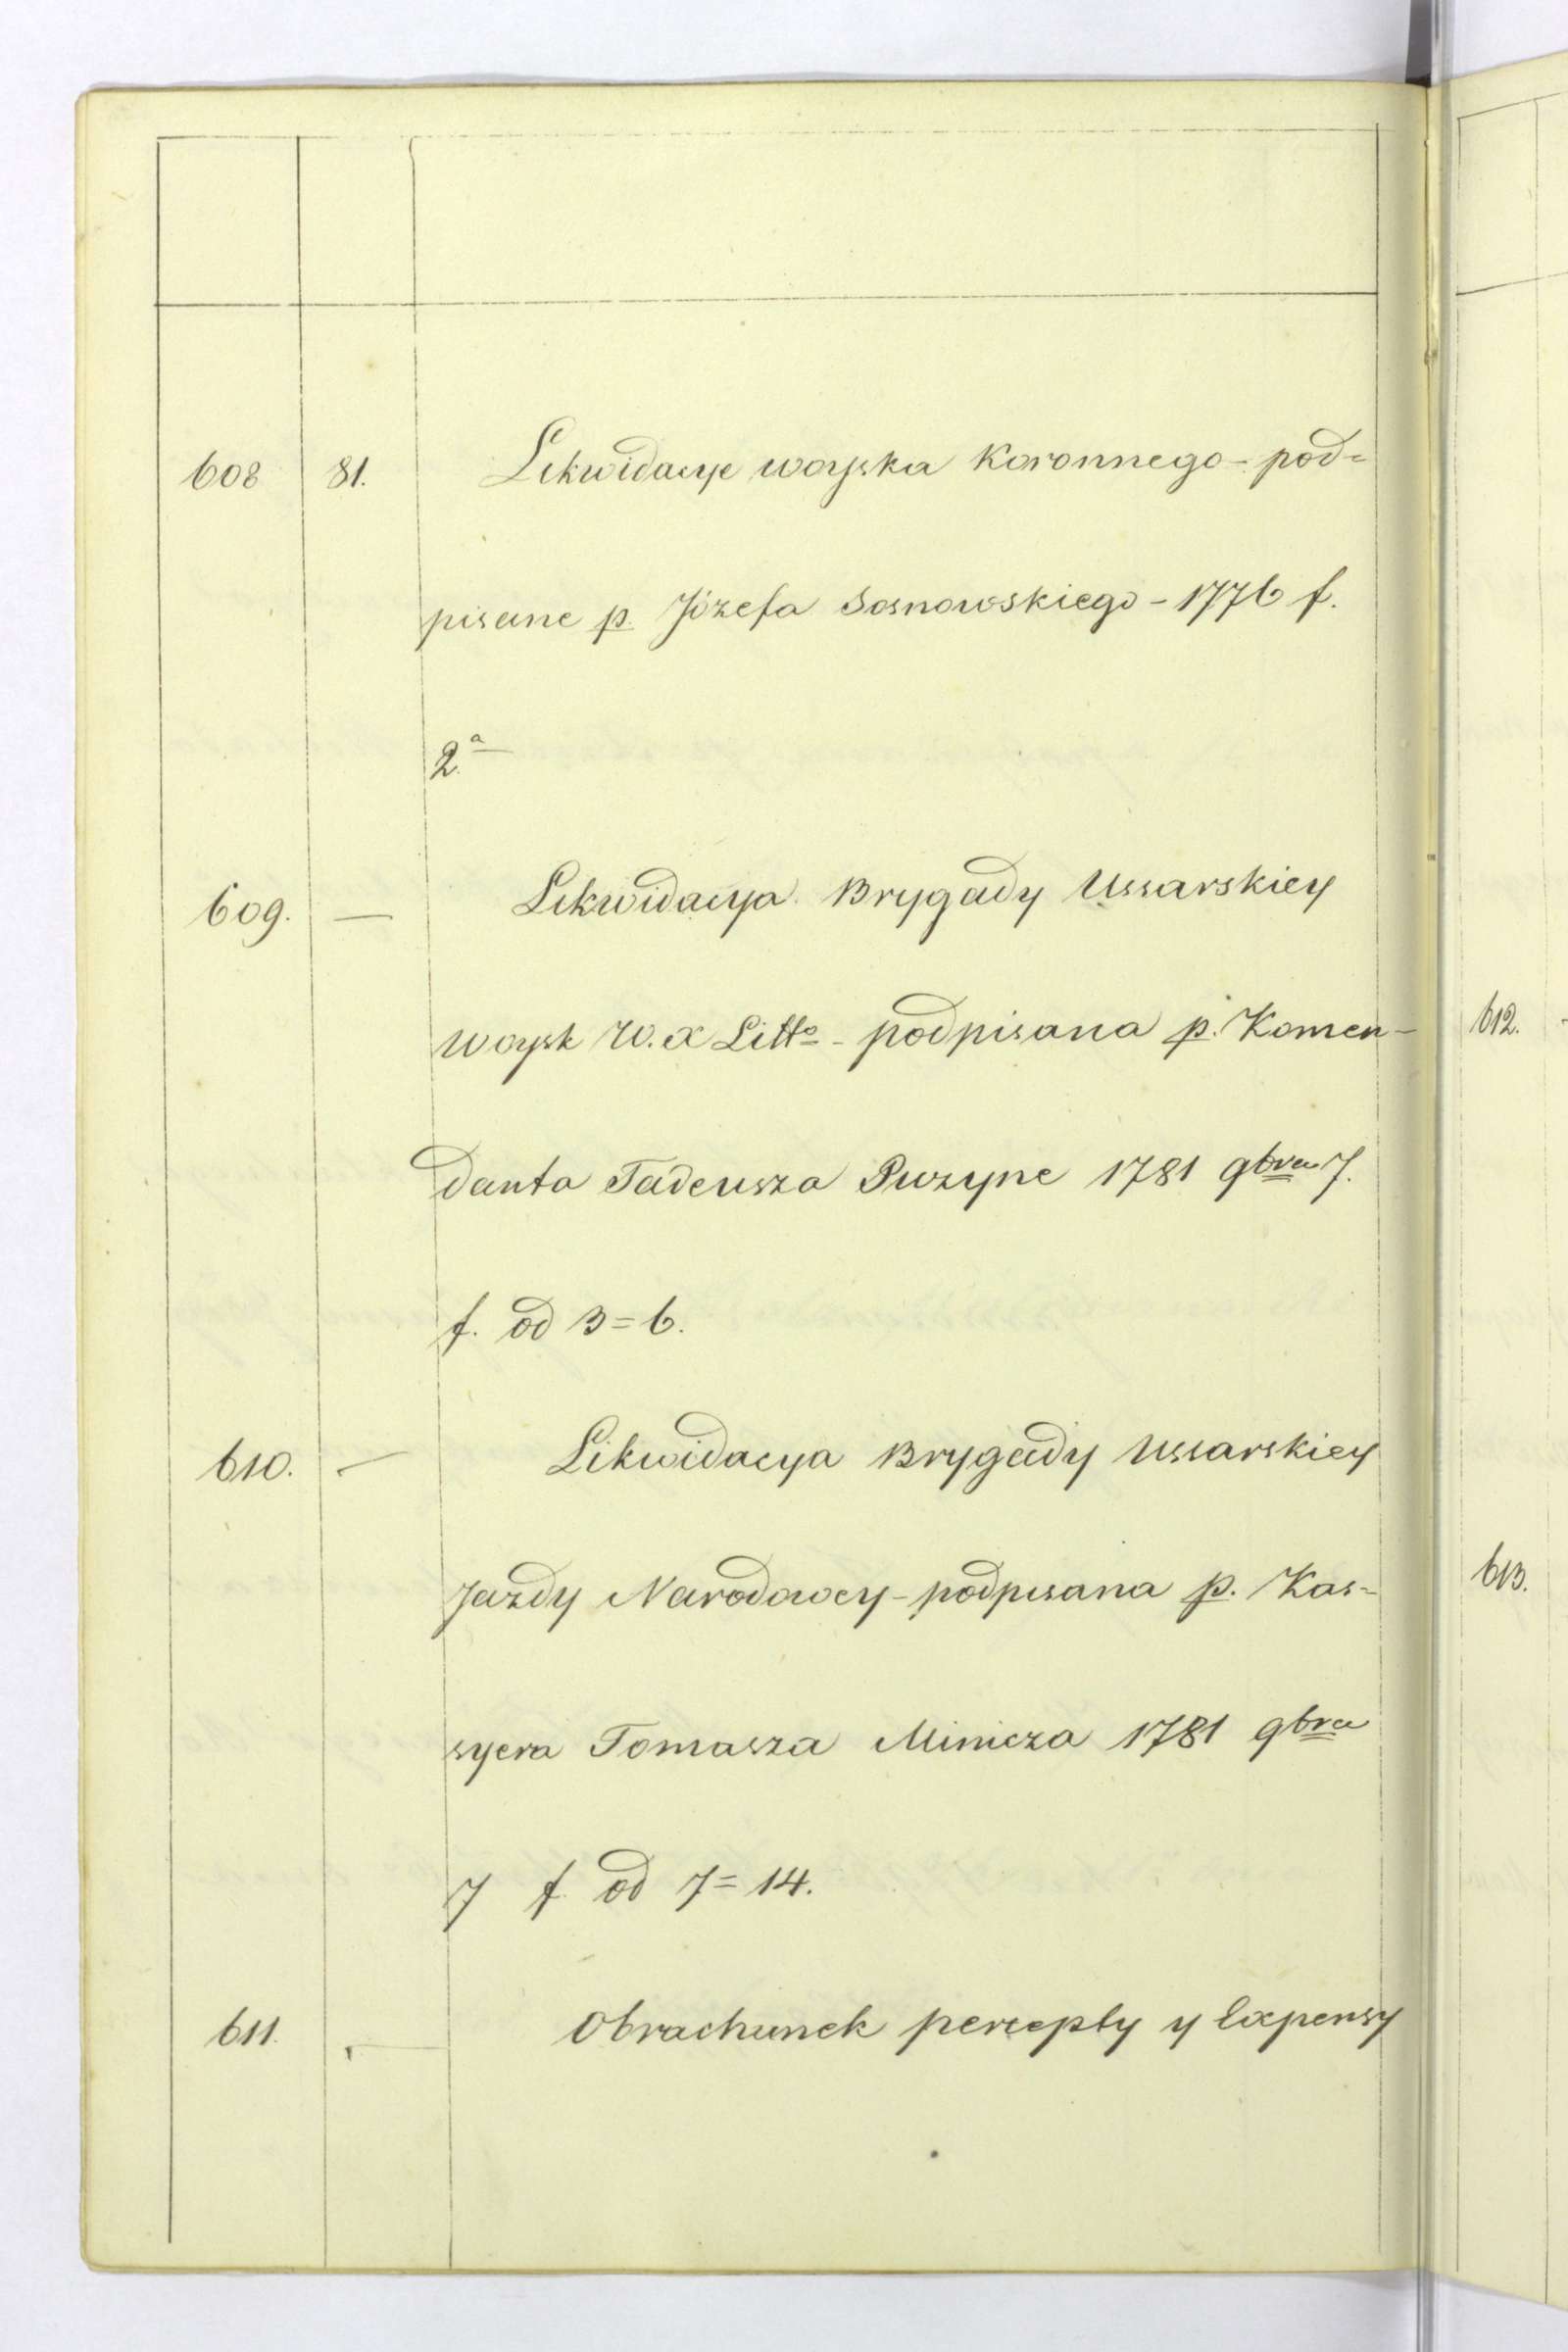 608 81. Likwidacye woyska Koronnego - pod=
pisane p. Józefa Sosnowskiego - 1776 f.
2.a
609. — Likwidacya Brygady Ussarskiey
woysk W. X Litto - podpisana p. Komen-
danta Tadeusza Puzyne 1781 9bra 7.
f. od 3 = 6.
610. — Likwidacya Brygady Ussarskiey
Jazdy Narodowey - podpisana p. Kas=
syera Tomasza Minicza 1781 9bra
7 f. od 7 = 14.
611. — Obrachunek percepty y Expensy
612.
613.